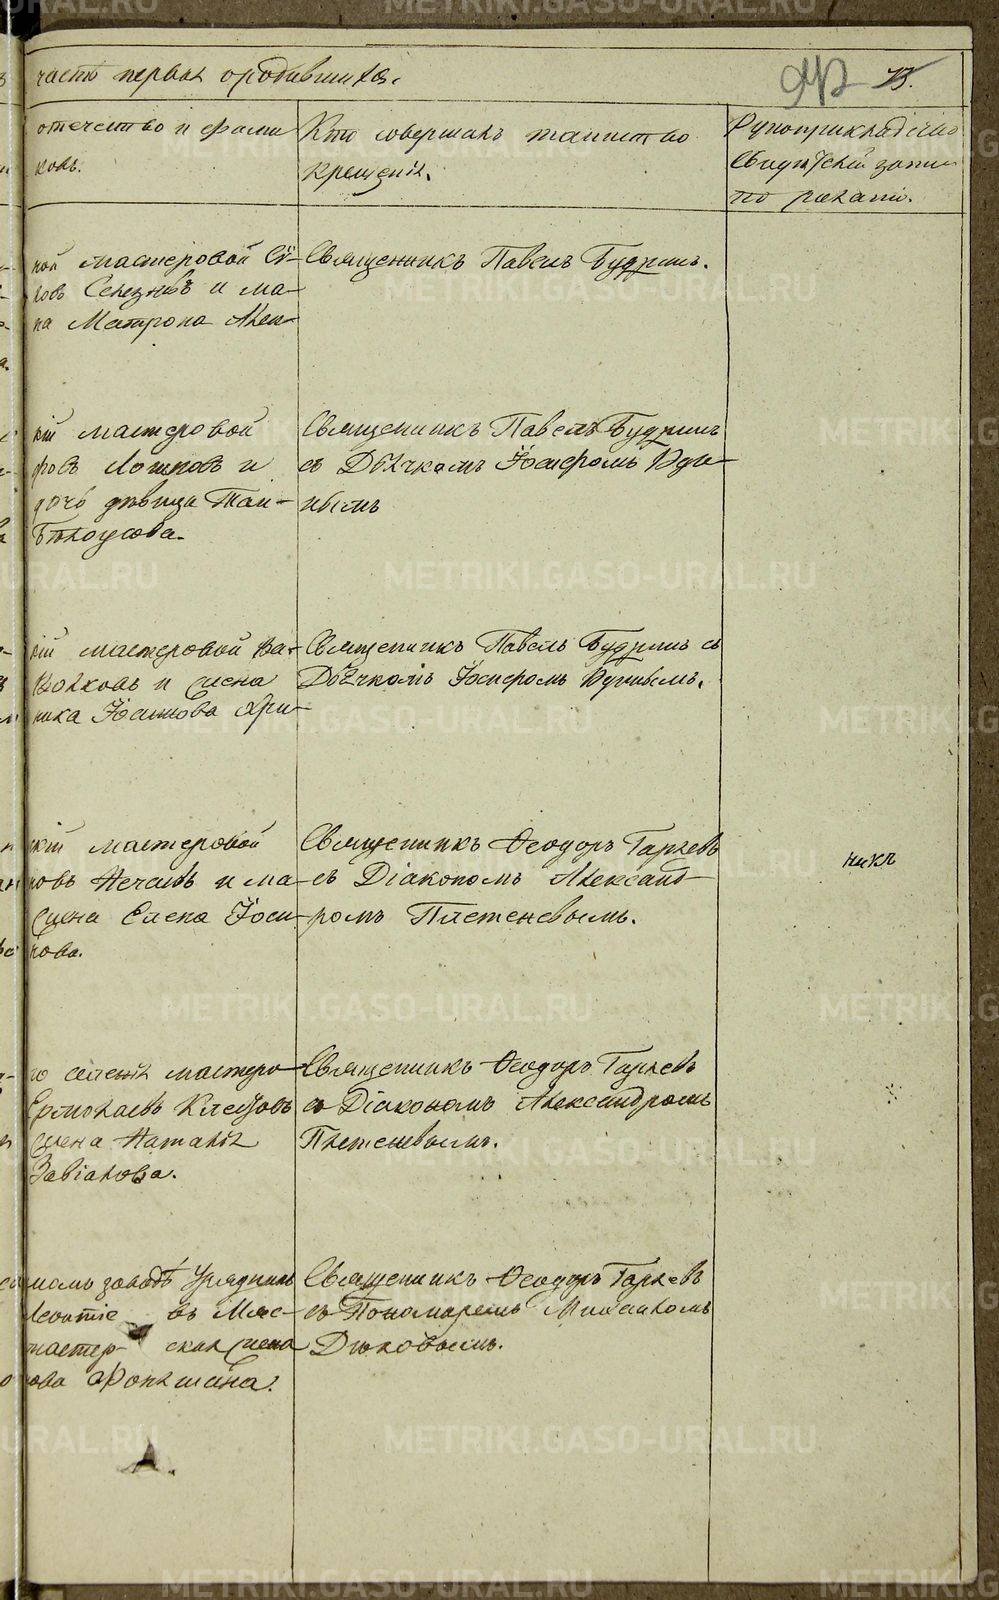 часть первая о родившихся.
73.
отечество и фами
ковъ.
Кто совершалъ таинство
крещенія.
Рукоприкладство
свидѣтелей записи
по желанію.
кой мастеровой
ковъ Селезневъ и ма-
ка Матрона Алек-
Священникъ Павелъ Будринъ.
кій мастеровой
ровъ Ложковъ и
дочь дѣвица
Бѣлоусова.
Священникъ Павелъ Будринъ
съ Дьячкомъ Іосифомъ
нымъ
кій мастеровой Ва-
Волковъ и жена
ника Іосифова Хри-
Священникъ Павелъ Будринъ съ
Дьячкомъ Іосифомъ
кій мастеровой
ровъ Нечаевъ и
жена Елена Іоси-
кова.
Священникъ Ѳеодоръ Гаряевъ
съ Діакономъ Александ-
ромъ Плетеневымъ.
го селенія мастеро-
Ермолаевъ Клещовъ
жена Наталія
Завіалова.
Священникъ Ѳеодоръ Гаряевъ
съ Діакономъ Александромъ
Плетеневымъ.
комъ заводѣ Урядникъ
Леонтіевъ Мяс-
мастерская жена
кова Фоньшина.
Священникъ Ѳеодоръ Гаряевъ
съ Пономаремъ Михаиломъ
Дюковымъ.
METRIKI.GASO-URAL.RU